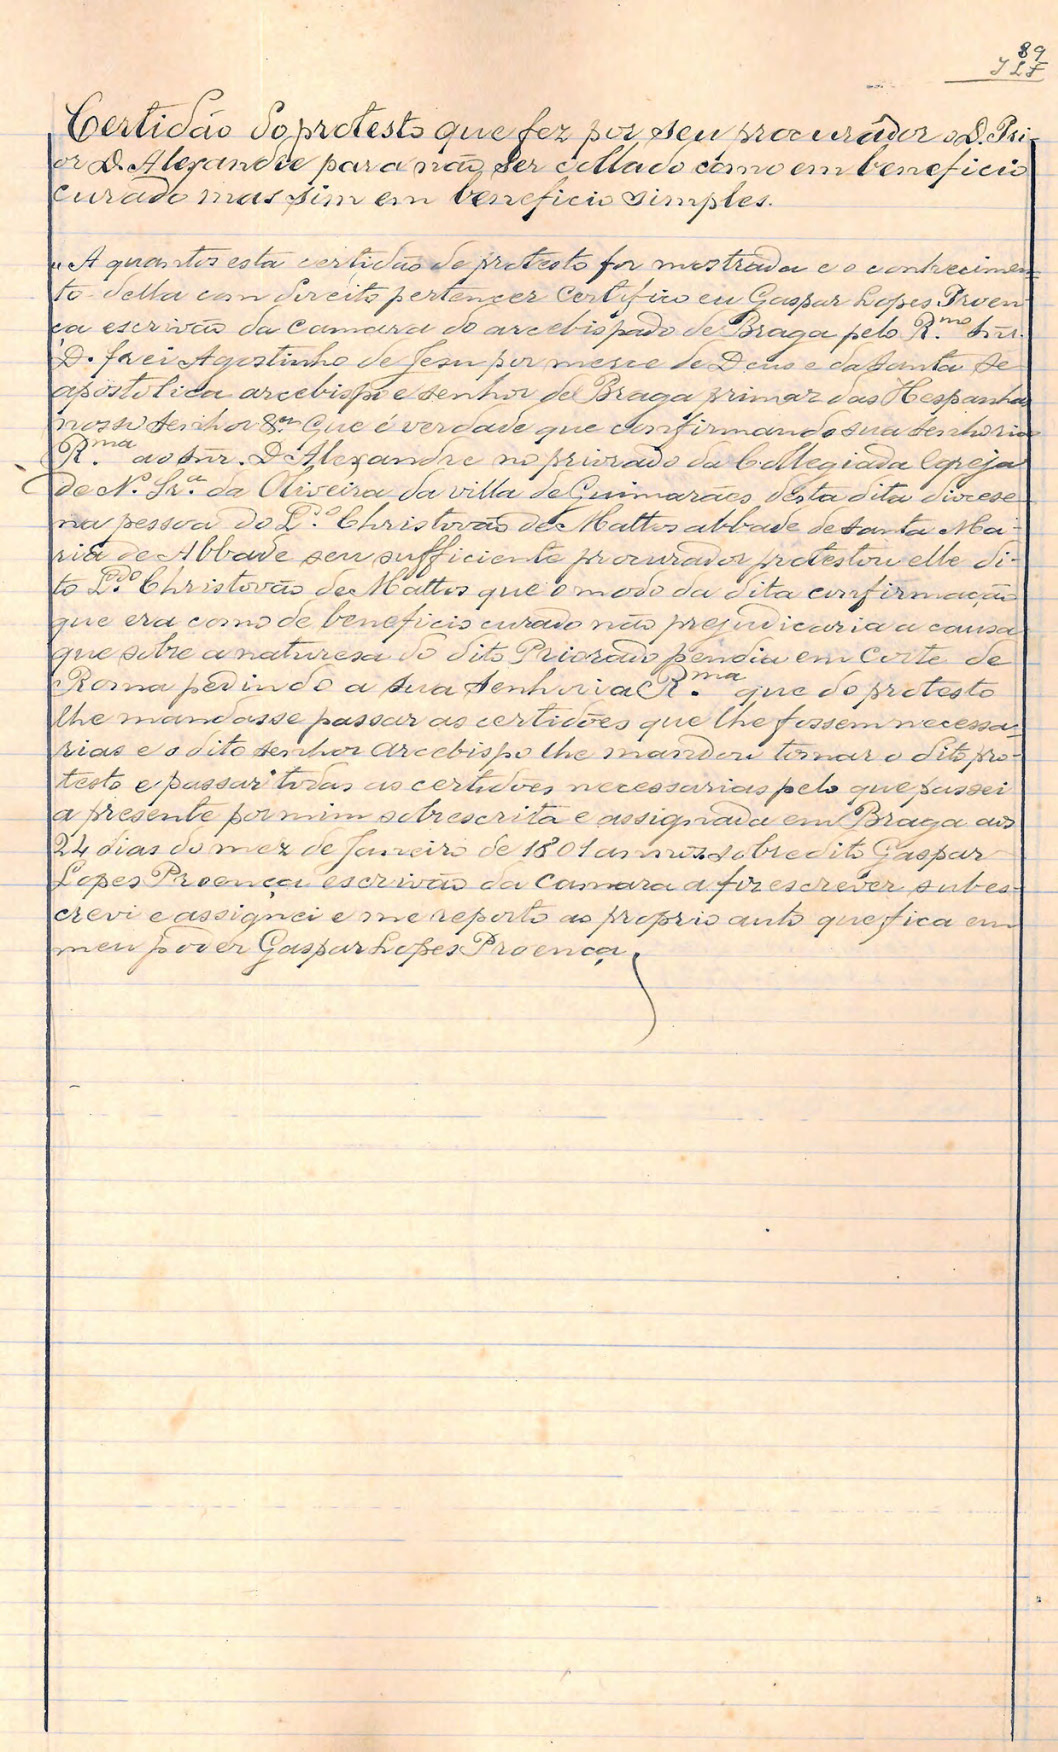 89
JLF
Certidão do protesto que fez por seu procurador o D. Pri-
or D. Alexandre para não ser collado como em beneficio
curado mas sim em beneficio simples.
"A quantos esta certidão de protesto for mostrada e o conhecimen-
to della com direito pertencer Certifico eu Gaspar Lopes Proen-
ça escrivão da camara do arcebispado de Braga pelo R.mo Snr.
D. frei Agostinho de Jesu por merce de Deus e da Santa Se
apostolica arcebispo e senhor de Braga primaz das Hespanhas
nosso senhor &.a Que é verdade que confirmando sua senhoria
R.ma ao Snr. D. Alexandre no priorado da Collegiada Egreja
de N.a Sr.a da Oliveira da villa de Guimarães desta dita diocese
na pessoa do L.do Christovão de Mattos abbade de Santa Ma-
ria de Abbade seu sufficiente procurador protestou elle di-
to L.do Christovão de Mattos que o modo da dita confirmação
que era como de beneficio curado não prejudicaria a causa
que sobre a naturesa do dito Priorado pendia em Corte de
Roma pedindo a sua Senhoria R.ma que do protesto
lhe mandasse passar as certidões que lhe fossem necessa-
rias e o dito senhor Arcebispo lhe mandou tomar o dito pro-
testo e passar todas as certidões necessarias pelo que passei
a presente por mim sobrescrita e assignada em Braga aos
24 dias do mez de Janeiro de 1601 annos. sobredito Gaspar
Lopes Proença escrivão da Camara a fiz escrever subes-
crevi e assignei e me reporto ao proprio auto que fica em
meu poder Gaspar Lopes Proença,